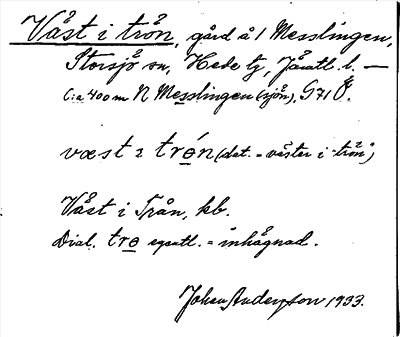 Våst i trôn, gård å 1 Messlingen,
Storsjö sn, Hede tg, Jämtl. l. —
C:a 400 m N Messlingen (sjön), G 71 Ö.
væst ı trón (dat. = väster i "trön")
Våst i Trån, kb.
Dial. tro egentl. = inhägnad.
Johan Anderzson 1933.